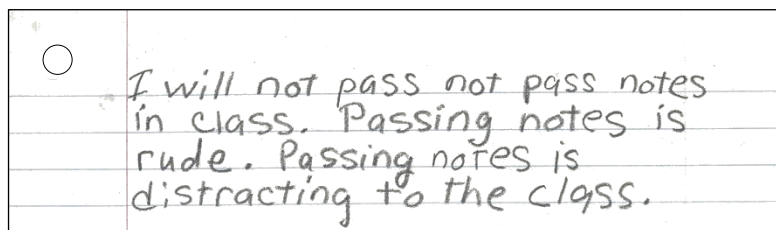 I will not pass not pass notes
in class. Passing notes is
rude. Passing notes is
distracting to the class.